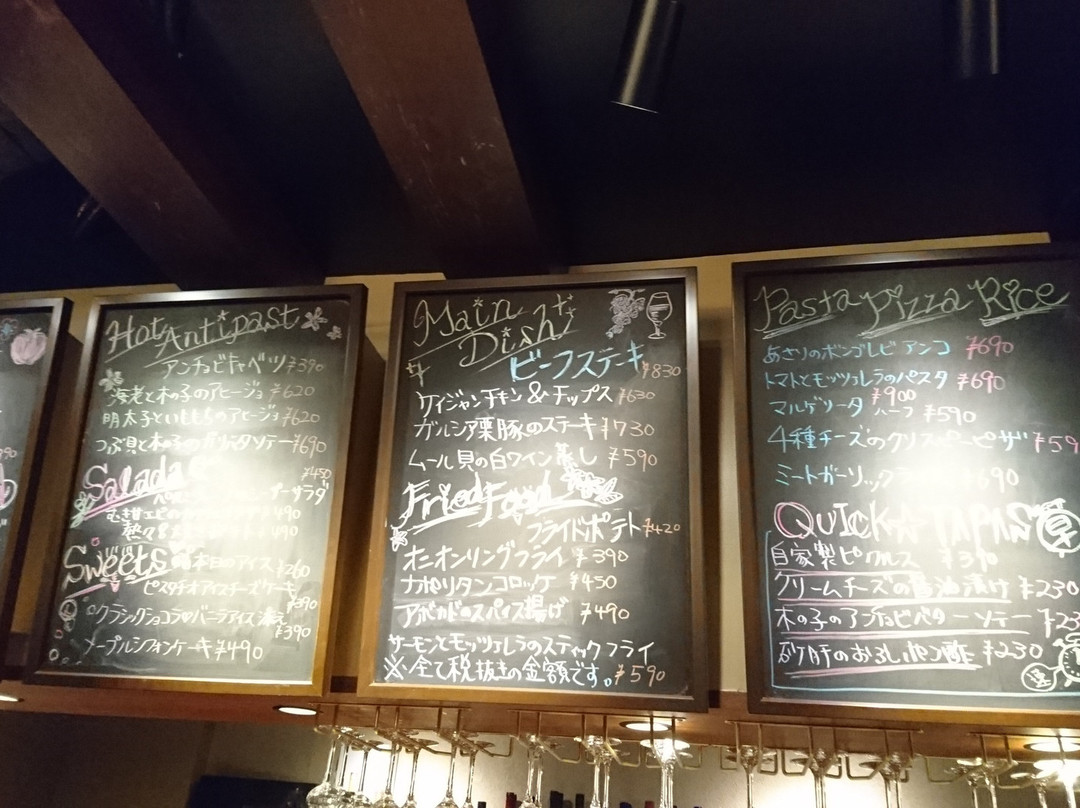 Hot Antipast
アンチョビキャベツ ¥390
海老と木の子のアヒージョ ¥620
明太子といももちのアヒージョ ¥620
つぶ貝と木の子の ソテー ¥690
Salada
¥450
サラダ
むき甘エビの ¥490
熱々 ¥490
Sweets
本日のアイス ¥260
ピスタチオアイスチーズケーキ
¥390
クラシックショコラ バニラアイス添え
¥390
メープルシフォンケーキ ¥490
Main
Dish
ビーフステーキ ¥830
ケイジャンチキン&チップス ¥630
ガルシア栗豚のステーキ ¥730
ムール貝の白ワイン蒸し ¥590
Fried Food
フライドポテト ¥420
オニオンリングフライ ¥390
ナポリタンコロッケ ¥450
アボカドのスパイス揚げ ¥490
サーモンとモッツァレラのスティックフライ
※全て税抜きの金額です。 ¥590
Pasta Pizza Rice
あさりのボンゴレビアンコ ¥690
トマトとモッツァレラのパスタ ¥690
マルゲリータ ¥900
ハーフ ¥590
4種チーズのクリスピーピザ ¥59
ミートガーリック ¥690
QUICK TAPAS
自家製ピクルス ¥390
クリームチーズの醤油漬け ¥230
木の子のアンチョビバターソテー ¥23
砂肝のおろしポン酢 ¥230